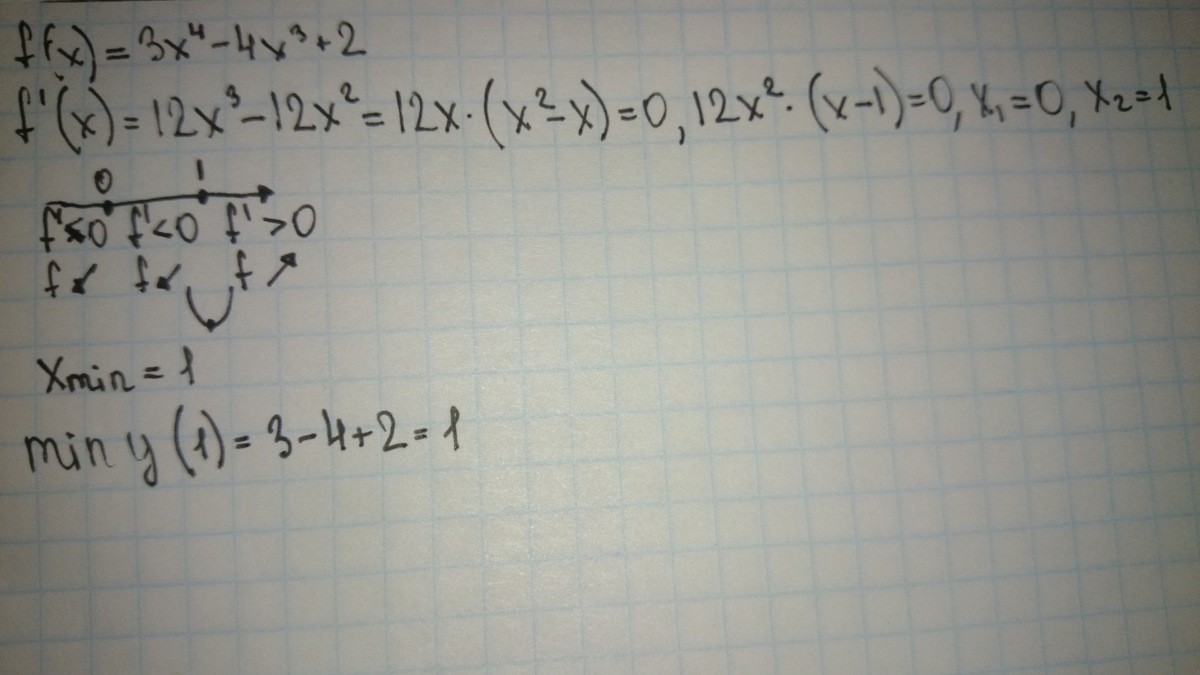 f(x) = 3x⁴ - 4x³ + 2
f'(x) = 12x³ - 12x² = 12x · (x² - x) = 0, 12x² · (x - 1) = 0, x₁ = 0, x₂ = 1
0 1
f' < 0 f' < 0 f' > 0
f ↙ f ↙ f ↗
xmin = 1
min y (1) = 3 - 4 + 2 = 1